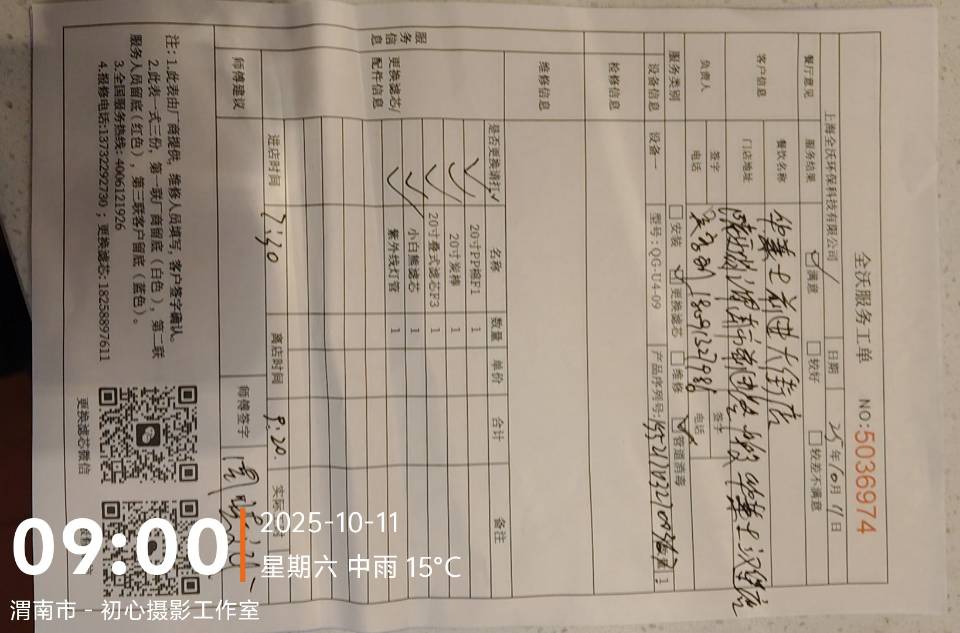 全沃服务工单
NO:5036974
上海全沃环保科技有限公司
日期 25年10月11日
餐厅意见 服务结果 ☑满意 □较好 □较差不满意
客户信息 餐饮名称 华莱士前进大街店
门店地址
负责人 签字 签字
电话 18091327986 电话
服务类别 □安装 ☑更换滤芯 □维修 ☑管道消毒
设备信息 设备一 型号:QG-U4-09 产品序列号: 数量 1
检修信息
维修信息
服务信息
更换滤芯/配件信息
是否更换请打√ 名称 数量 单价 合计 备注
√ 20寸PP棉F1 1
√ 20寸炭棒 1
√ 20寸叠式滤芯F3 1
√ 小白熊滤芯 1
√ 紫外线灯管 1
进店时间 7:30 离店时间 9.20. 实际
师傅建议 师傅签字
注:1.此表由厂商提供,维修人员填写,客户签字确认。
2.此表一式三份,第一联厂商留底(白色),第二联
服务人员留底(红色),第三联客户留底(蓝色)。
3.全国服务热线:4006121926
4.报修电话:13732292730;更换滤芯:18258897611
更换滤芯微信
09:00
2025-10-11
星期六 中雨 15℃
渭南市 - 初心摄影工作室